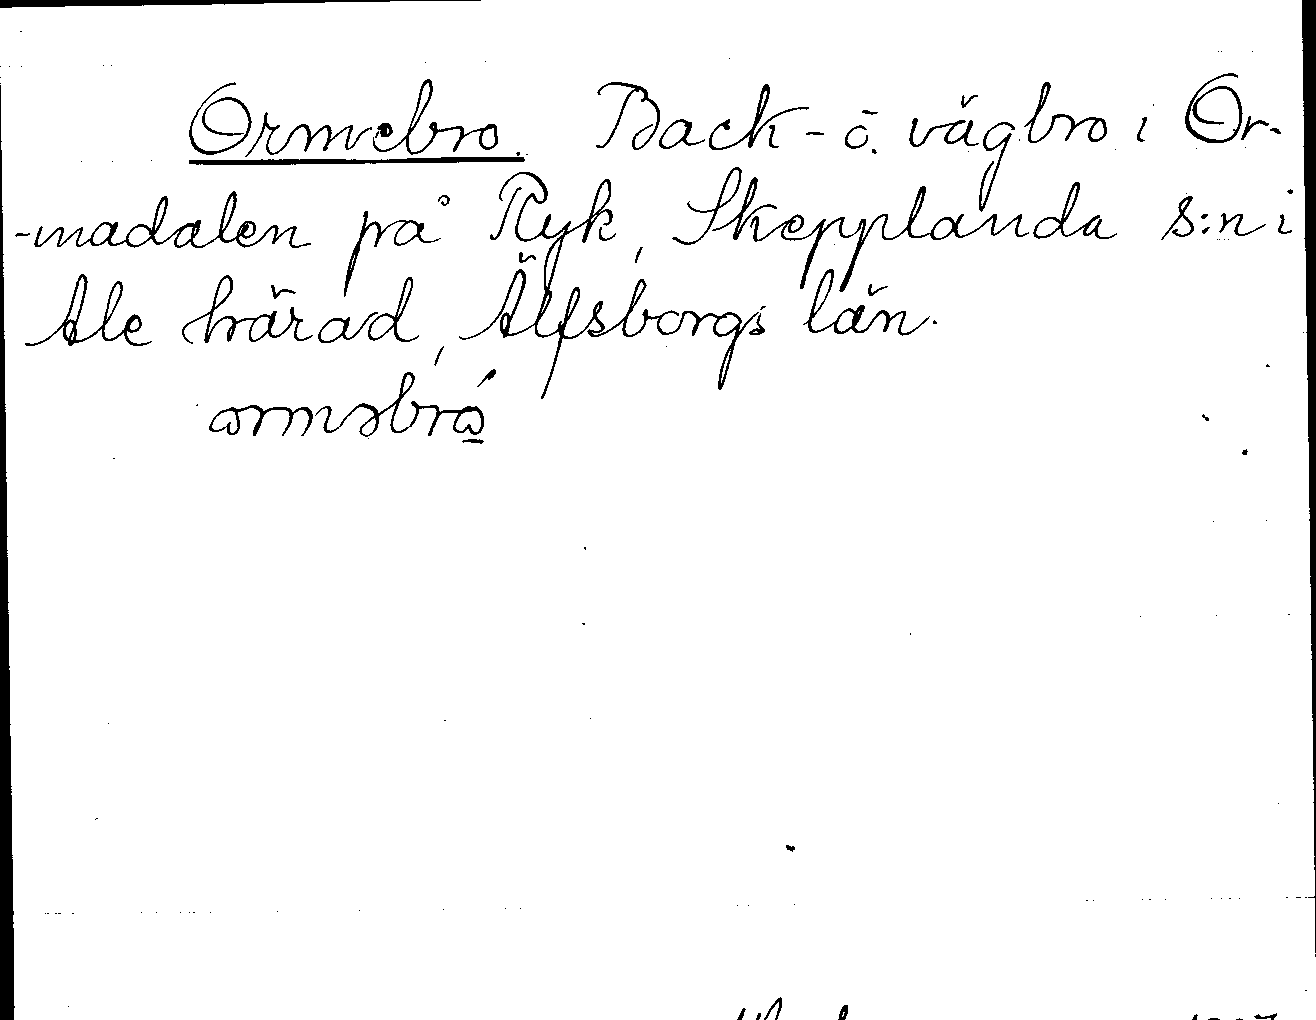 Ormebro. Back- o. vägbro i Or-
-madalen på Ryk, Skepplanda s:n i
Ale härad, Älfsborgs län.
ɷrməbrɷ́